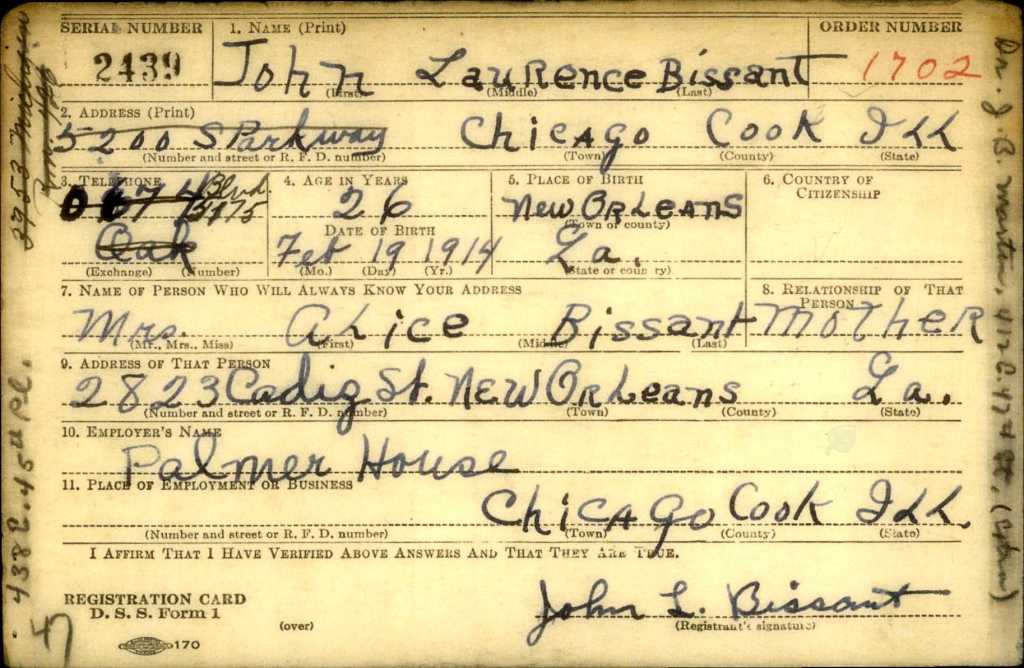 SERIAL NUMBER
1. NAME (Print)
ORDER NUMBER
2439
John Laurence Bissant
1702
(First) (Middle) (Last)
2. ADDRESS (Print)
5200 S Parkway Chicago Cook Ill
(Number and street or R. F. D. number) (Town) (County) (State)
3. TELEPHONE
Blvd.
5175
Oak
(Exchange) (Number)
4. AGE IN YEARS
26
DATE OF BIRTH
Feb 19 1914
(Mo.) (Day) (Yr.)
5. PLACE OF BIRTH
New Orleans
(Town or county)
La.
(State or country)
6. COUNTRY OF
CITIZENSHIP
7. NAME OF PERSON WHO WILL ALWAYS KNOW YOUR ADDRESS
Mrs. Alice Bissant
(Mr., Mrs., Miss) (First) (Middle) (Last)
8. RELATIONSHIP OF THAT
PERSON
Mother
9. ADDRESS OF THAT PERSON
2823 Cadiz St. New Orleans La.
(Number and street or R. F. D. number) (Town) (County) (State)
10. EMPLOYER'S NAME
Palmer House
11. PLACE OF EMPLOYMENT OR BUSINESS
Chicago Cook Ill.
(Number and street or R. F. D. number) (Town) (County) (State)
I AFFIRM THAT I HAVE VERIFIED ABOVE ANSWERS AND THAT THEY ARE TRUE.
REGISTRATION CARD
D. S. S. Form 1
(over)
John L. Bissant
(Registrant's signature)
170
438 E. 45th Pl.
Dr. J. B. Martin, 411 E. 47th St.,